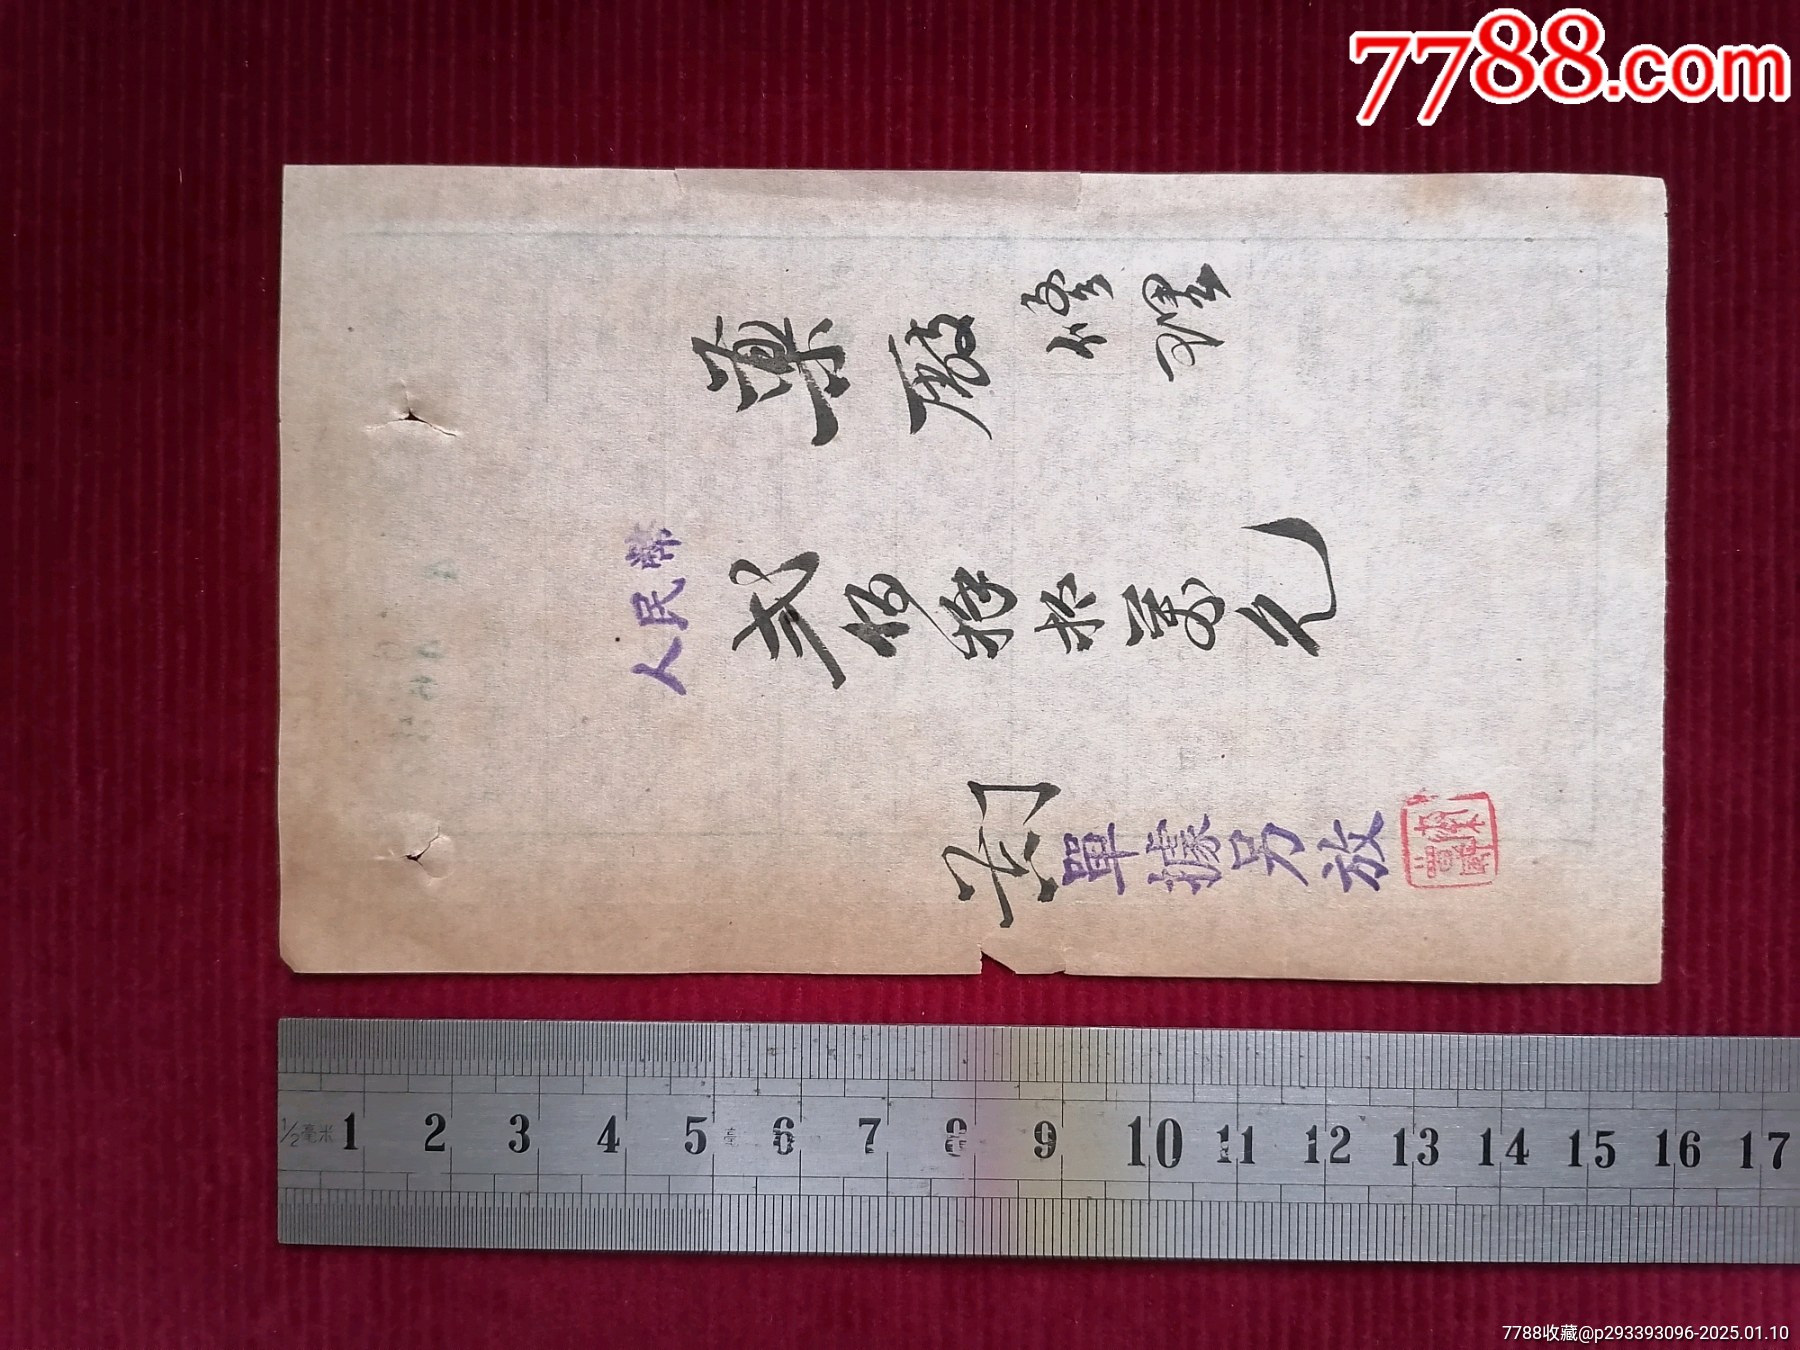 7788.com
藥厰修理
人民幣
弍佰拾萬元
單據另放
1/2毫米 1 2 3 4 5 6 7 8 9 10 11 12 13 14 15 16 17
7788收藏@p293393096-2025.01.10